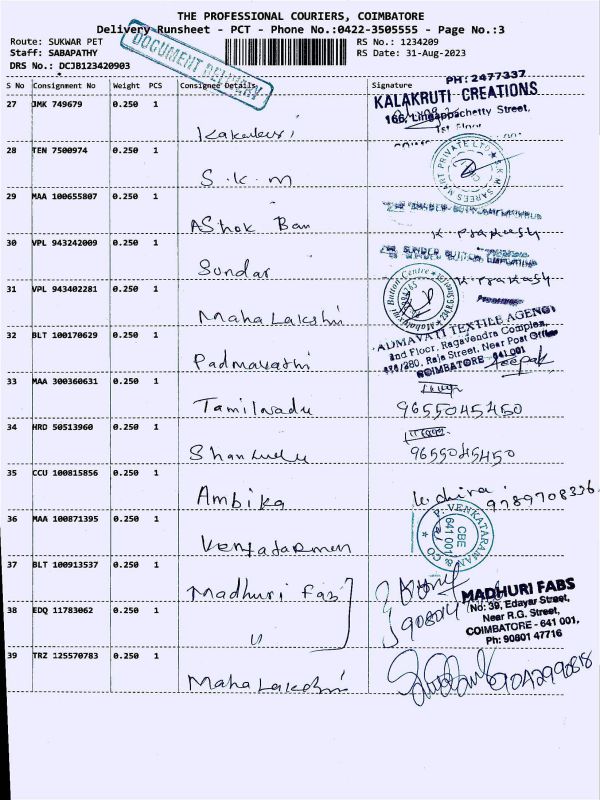 THE PROFESSIONAL COURIERS, COIMBATORE
Delivery Runsheet - PCT - Phone No.:0422-3505555 - Page No.:3
Route: SUKWAR PET
RS No.: 1234209
Staff: SABAPATHY
RS Date: 31-Aug-2023
DRS No.: DCJB123420903
DOCUMENT DELIVERY
S No Consignment No Weight PCS Consignee Details Signature
PH: 2477337
KALAKRUTI CREATIONS
166, Lingappachetty Street,
1st Floor
27 JMK 749679 0.250 1
28 TEN 7500974 0.250 1
S.K.M
S.K.M. SAREES MART PRIVATE LTD
29 MAA 100655807 0.250 1
AShok Ban
K. Prakash
30 VPL 943242009 0.250 1
Sundar
SUNDER BUTTON EMPORIUM
K. Prakash
31 VPL 943402281 0.250 1
Maha Lakshmi
Mahalaxmi Button Centre
32 BLT 100170629 0.250 1
Padmavathi
PADMAVATI TEXTILE AGENCY
2nd Floor, Ragavendra Complex,
Raja Street, Near Post Office
COIMBATORE 641 001
Deepak
33 MAA 300360631 0.250 1
Tamilnadu
9655045450
34 HRD 50513960 0.250 1
9655045450
35 CCU 100815856 0.250 1
Ambika
9789708336
36 MAA 100871395 0.250 1
P. VENKATARAMAN & CO
CBE
641 001
37 BLT 100913537 0.250 1
Madhuri Fab
38 EDQ 11783062 0.250 1
〃
MADHURI FABS
No: 39, Edayar Street,
Near R.G. Street,
COIMBATORE - 641 001,
Ph: 90801 47716
39 TRZ 125570783 0.250 1
Maha Lakshmi
9042990818